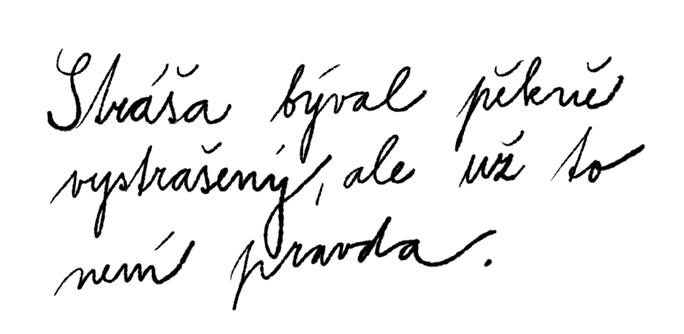 Stráša býval pěkně
vystrašený, ale už to
není pravda.